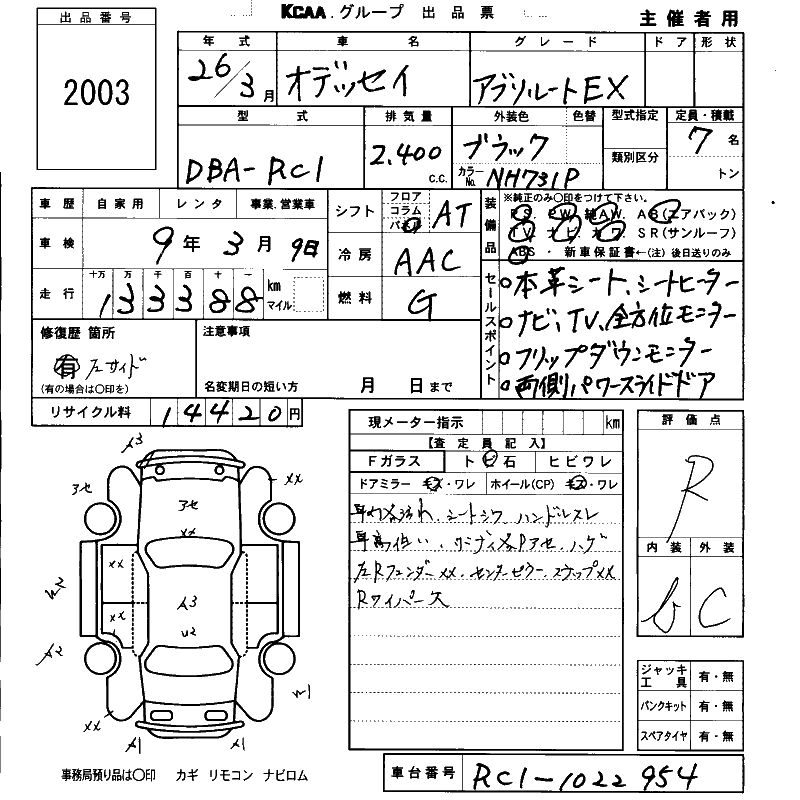 KCAA.グループ 出品票 主催者用
出品番号
2003
年式 車名 グレード ドア 形状
26/3月 オデッセイ アブソルートEX
型式 排気量 外装色 色替 型式指定 定員・積載
DBA-RC1 2,400 c.c. ブラック カラーNo. NH731P 類別区分 7名 トン
車歴 自家用 レンタ 事業.営業車
シフト フロア コラム パネル AT
装備品 ※純正のみ○印をつけて下さい。
P.S. P.W. AW. AB(エアバッグ)
TV. ナビ カワ SR(サンルーフ)
ABS・新車保証書←(注)後日送りのみ
車検 9年3月9日
冷房 AAC
走行 十万 万 千 百 十 一
133388 km マイル
燃料 G
セールスポイント
○本革シート、シートヒーター
○ナビ、TV、全方位モニター
○フリップダウンモニター
○両側パワースライドドア
修復歴 箇所
有 左サイド
(有の場合は○印を)
注意事項
名変期日の短い方 月 日まで
リサイクル料 14420円
現メーター指示 km
【査定員記入】
Fガラス トビ石 ヒビワレ
ドアミラー キズ・ワレ ホイール(CP) キズ・ワレ
シートシワ ハンドルスレ
センターピラー.ステップXX
Rワイパース
評価点
R
内装 外装
b C
A3
XX
アセ
アセ
XX
XX
XX
A3
U2
A2
W2
W1
XX
A1 A1
ジャッキ工具 有・無
パンクキット 有・無
スペアタイヤ 有・無
事務局預り品は○印 カギ リモコン ナビロム
車台番号 RC1-1022954